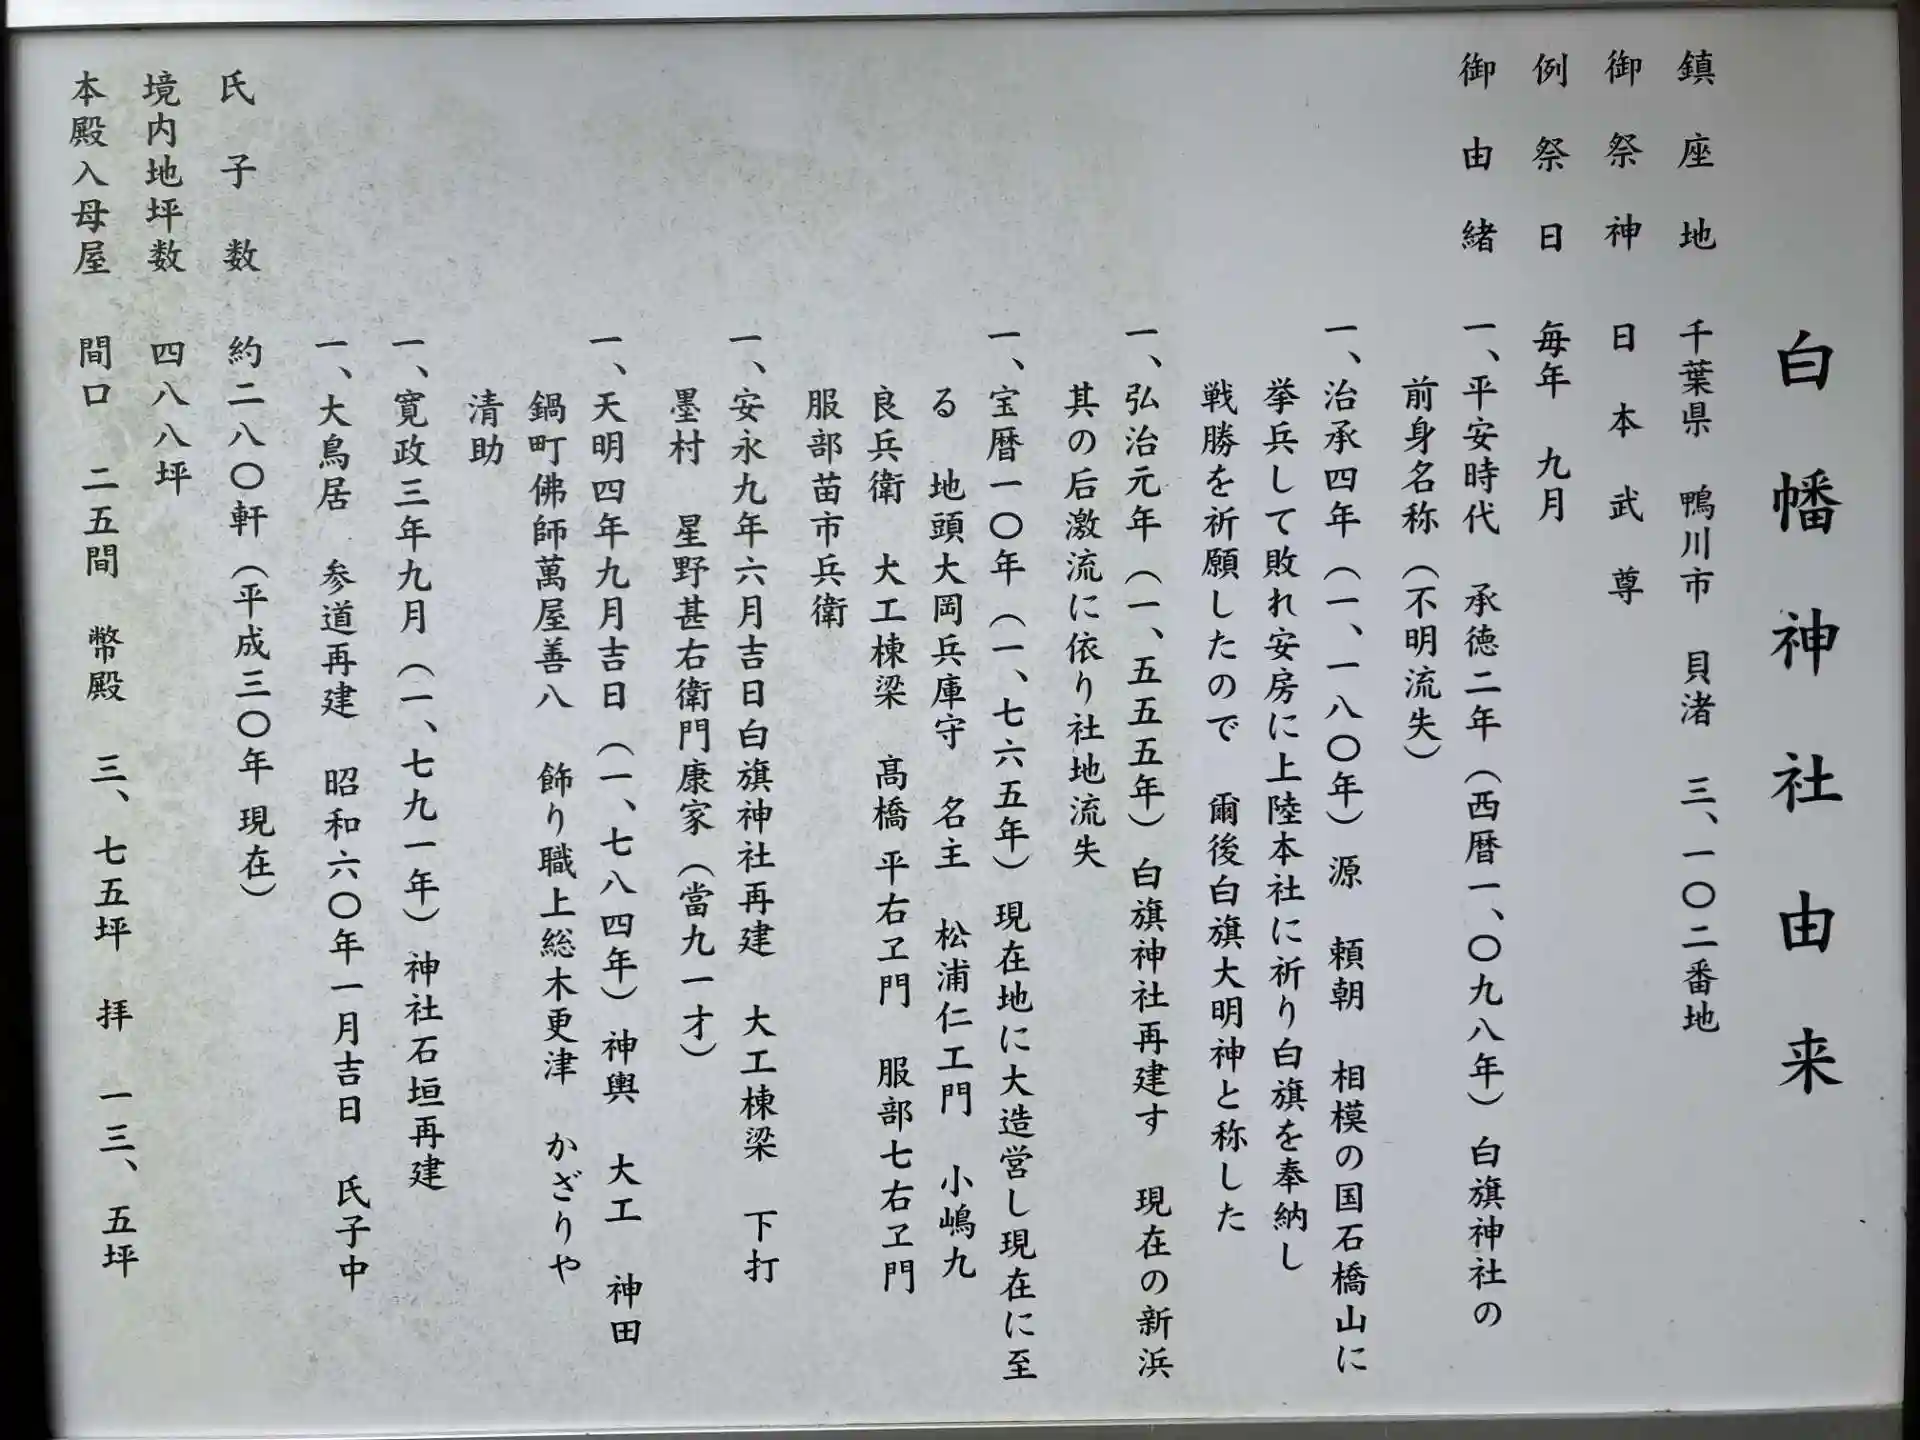 白幡神社由来
鎮座地 千葉県 鴨川市 貝渚 三、一〇二番地
御祭神 日本武尊
例祭日 毎年 九月
御由緒 一、平安時代 承徳二年（西暦一、〇九八年）白旗神社の
前身名称（不明流失）
一、治承四年（一、一八〇年）源 頼朝 相模の国石橋山に
挙兵して敗れ安房に上陸本社に祈り白旗を奉納し
戦勝を祈願したので 爾後白旗大明神と称した
一、弘治元年（一、五五五年）白旗神社再建す 現在の新浜
其の后激流に依り社地流失
一、宝暦一〇年（一、七六五年）現在地に大造営し現在に至
る 地頭大岡兵庫守 名主 松浦仁工門 小嶋九
良兵衛 大工棟梁 髙橋 平右ヱ門 服部七右ヱ門
服部苗市兵衛
一、安永九年六月吉日白旗神社再建 大工棟梁 下打
墨村 星野甚右衛門康家（當九一才）
一、天明四年九月吉日（一、七八四年）神輿 大工 神田
鍋町佛師萬屋善八 飾り職上総木更津 かざりや
清助
一、寛政三年九月（一、七九一年）神社石垣再建
一、大鳥居 参道再建 昭和六〇年一月吉日 氏子中
氏子数 約二八〇軒（平成三〇年 現在）
境内地坪数 四八八坪
本殿入母屋 間口 二五間 幣殿 三、七五坪 拝 一三、五坪